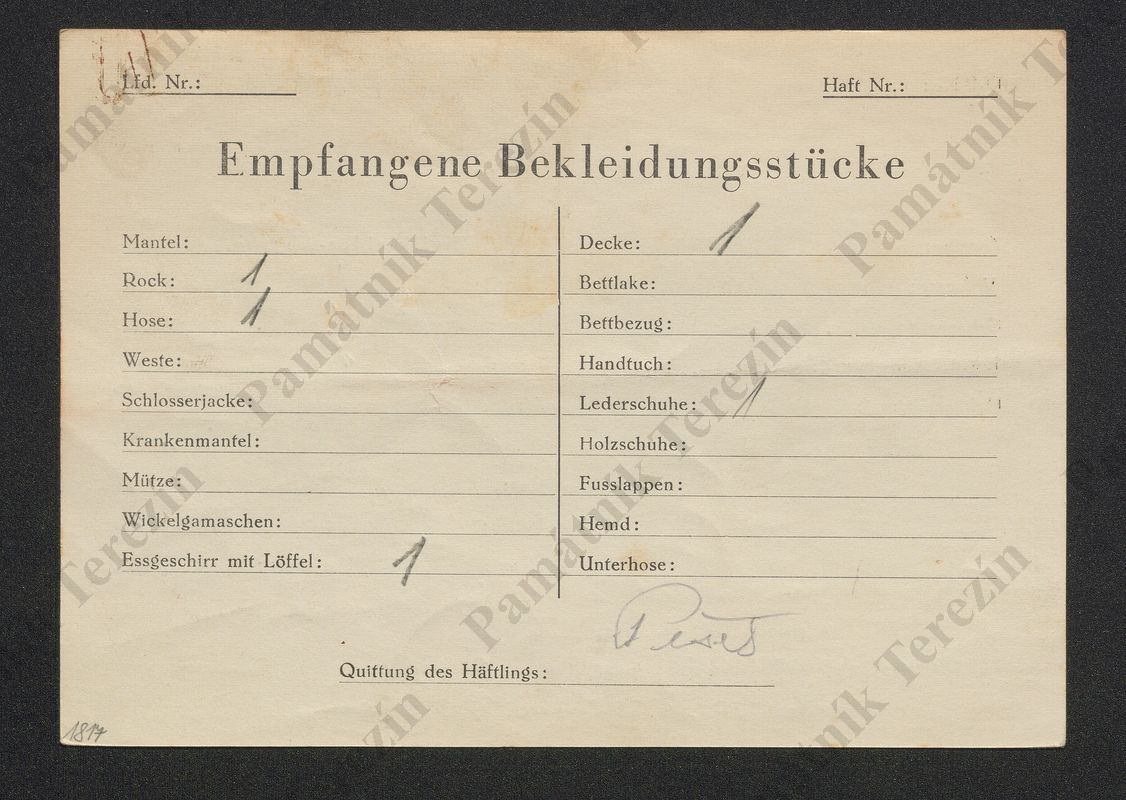 Lfd. Nr.:
Haft Nr.:
Empfangene Bekleidungsstücke
Mantel:
Rock: 1
Hose: 1
Weste:
Schlosserjacke:
Krankenmantel:
Mütze:
Wickelgamaschen:
Essgeschirr mit Löffel: 1
Decke: 1
Bettlake:
Bettbezug:
Handtuch:
Lederschuhe: 1
Holzschuhe:
Fusslappen:
Hemd:
Unterhose:
Quittung des Häftlings:
1817
Památník Terezín